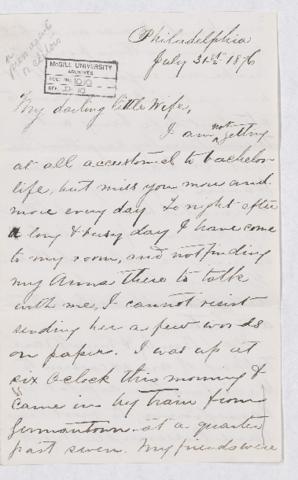 Philadelphia
July 31st 1876
McGILL UNIVERSITY
ARCHIVES
ACC. NO. 1010
REF.
My darling little Wife,
I am not getting
at all accustomed to bachelor
life, but miss you more and
more every day. To night after
a long & busy day I have come
to my room, and not finding
my Anna there to talk
with me, I cannot resist
sending her a few words
on paper. I was up at
six Oclock this morning &
came in by train from
Germantown at a quarter
past seven. My friends were